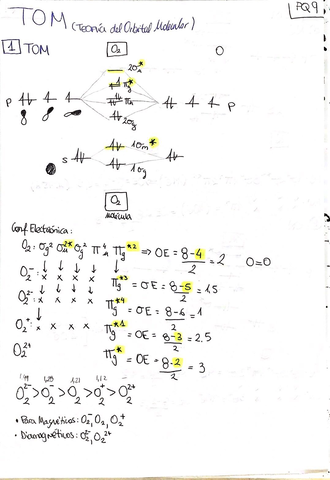 TOM (Teoría del Orbital Molecular)
PQ9
1 TOM
O₂
O
2σu*
πg*
πu
2σg
P
P
1σu*
1σg
S
O₂
molécula
Conf. Electrónica:
O₂: σg² σu²* σg² πu⁴ πg*² ⇒ OE = 8-4/2 = 2 O=O
O₂⁻: x x x x πg*³ = OE = 8-5/2 = 1.5
O₂²⁻: x x x x πg*⁴ = OE = 8-6/2 = 1
O₂⁺: x x x x πg*¹ = OE = 8-3/2 = 2.5
O₂²⁺ πg* = OE = 8-2/2 = 3
1,49 1,21 1,12
O₂²⁻ > O₂⁻ > O₂ > O₂⁺ > O₂²⁺
• Para Magnéticos: O₂⁻, O₂, O₂⁺
• Diamagnéticos: O₂²⁻, O₂²⁺